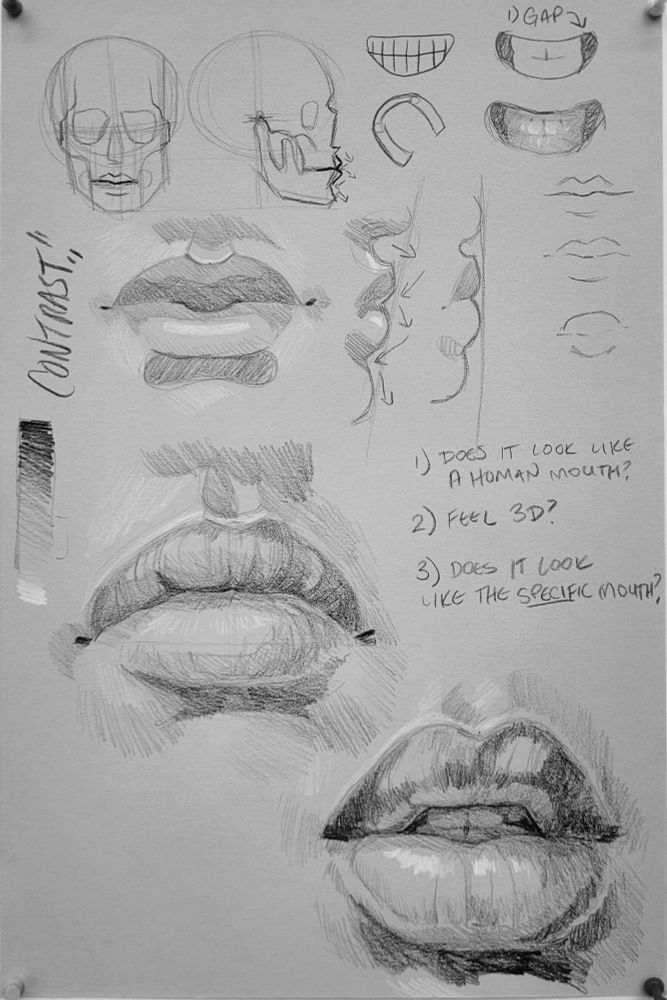 1) GAP
CONTRAST,,
1) DOES IT LOOK LIKE
A HUMAN MOUTH?
2) FEEL 3D?
3) DOES IT LOOK
LIKE THE SPECIFIC MOUTH?